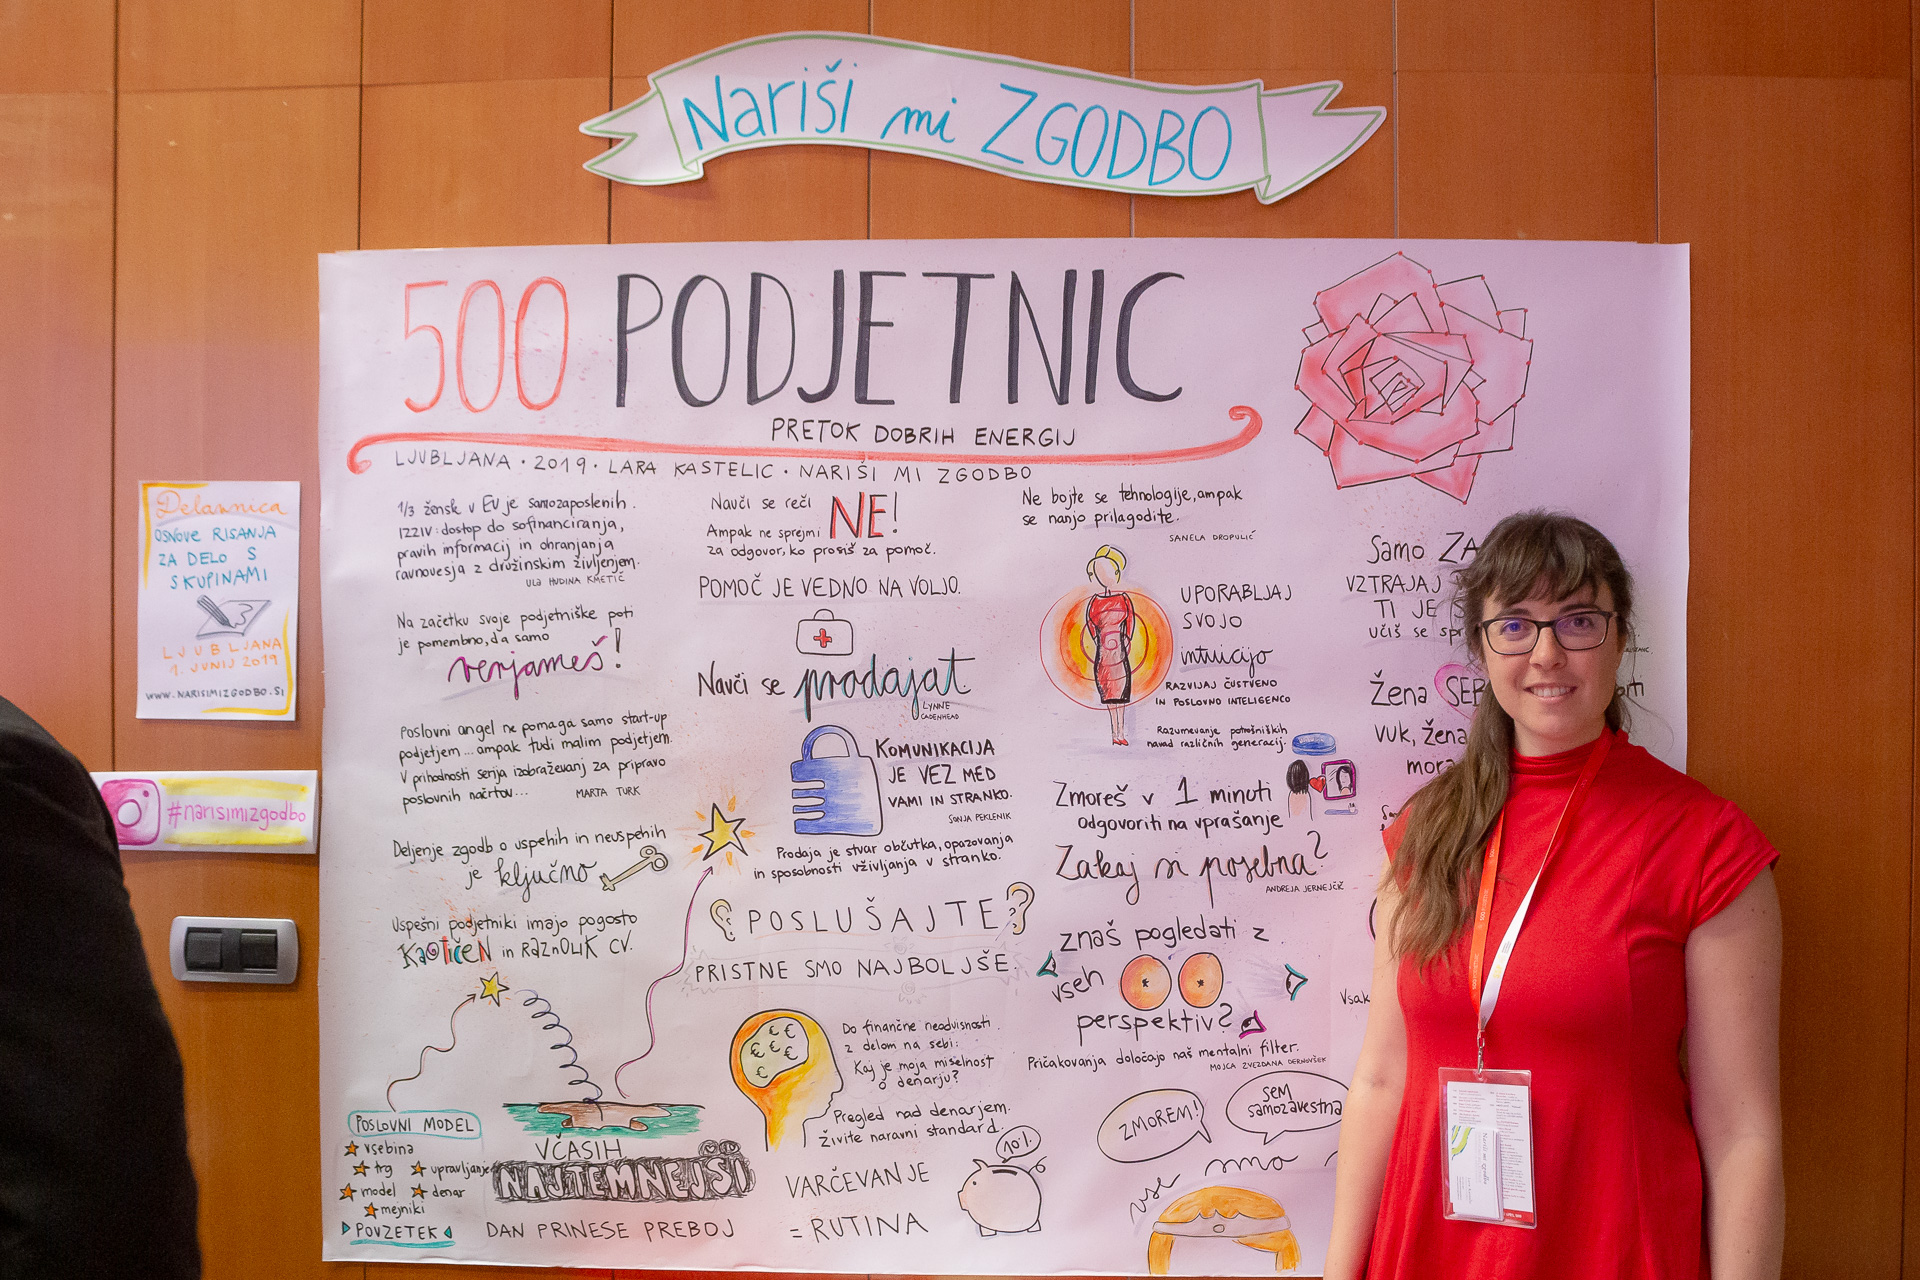 Nariši mi ZGODBO
500 PODJETNIC
PRETOK DOBRIH ENERGIJ
LJUBLJANA · 2019 · LARA KASTELIC · NARIŠI MI ZGODBO
Delavnica
OSNOVE RISANJA
ZA DELO S
SKUPINAMI
LJUBLJANA
1. JUNIJ 2019
WWW.NARISIMIZGODBO.SI
#narisimizgodbo
1/3 žensk v EU je samozaposlenih.
IZZIV: dostop do sofinanciranja,
pravih informacij in ohranjanja
ravnovesja z družinskim življenjem.
ULA HUDINA KMETIČ
Na začetku svoje podjetniške poti
je pomembno, da samo
verjameš!
Poslovni angel ne pomaga samo start-up
podjetjem... ampak tudi malim podjetjem.
V prihodnosti serija izobraževanj za pripravo
poslovnih načrtov...
MARTA TURK
Deljenje zgodb o uspehih in neuspehih
je ključno
Uspešni podjetniki imajo pogosto
KAOTIČEN in RAZNOLIK CV.
POSLOVNI MODEL
vsebina
trg
upravljanje
model
denar
mejniki
POVZETEK
VČASIH
NAJTEMNEJŠI
DAN PRINESE PREBOJ
Nauči se reči
NE!
Ampak ne sprejmi
za odgovor, ko prosiš za pomoč.
POMOČ JE VEDNO NA VOLJO.
Nauči se prodajat
LYNNE
CADENHEAD
KOMUNIKACIJA
JE VEZ MED
VAMI IN STRANKO.
SONJA PEKLENIK
Prodaja je stvar občutka, opazovanja
in sposobnosti vživljanja v stranko.
POSLUŠAJTE
PRISTNE SMO NAJBOLJŠE.
€ € € € € €
Do finančne neodvisnosti
z delom na sebi:
Kaj je moja miselnost
o denarju?
Pregled nad denarjem.
Živite naravni standard.
VARČEVANJE
= RUTINA
10%
Ne bojte se tehnologije, ampak
se nanjo prilagodite.
SANELA DROPULIĆ
UPORABLJAJ
SVOJO
intuicijo
RAZVIJAJ ČUSTVENO
IN POSLOVNO INTELIGENCO
Razumevanje potrošniških
navad različnih generacij.
Zmoreš v 1 minuti
odgovoriti na vprašanje
Zakaj si posebna?
ANDREJA JERNEJČIČ
Znaš pogledati z
vseh
perspektiv?
Pričakovanja določajo naš mentalni filter.
MOJCA ZVEZDANA DERNOVŠEK
ZMOREM!
SEM
samozavestna
vse smo
Samo ZA
VZTRAJAJ
TI JE
UČIŠ se spr
Žena SEB
vuk, žena
mora
Vsak